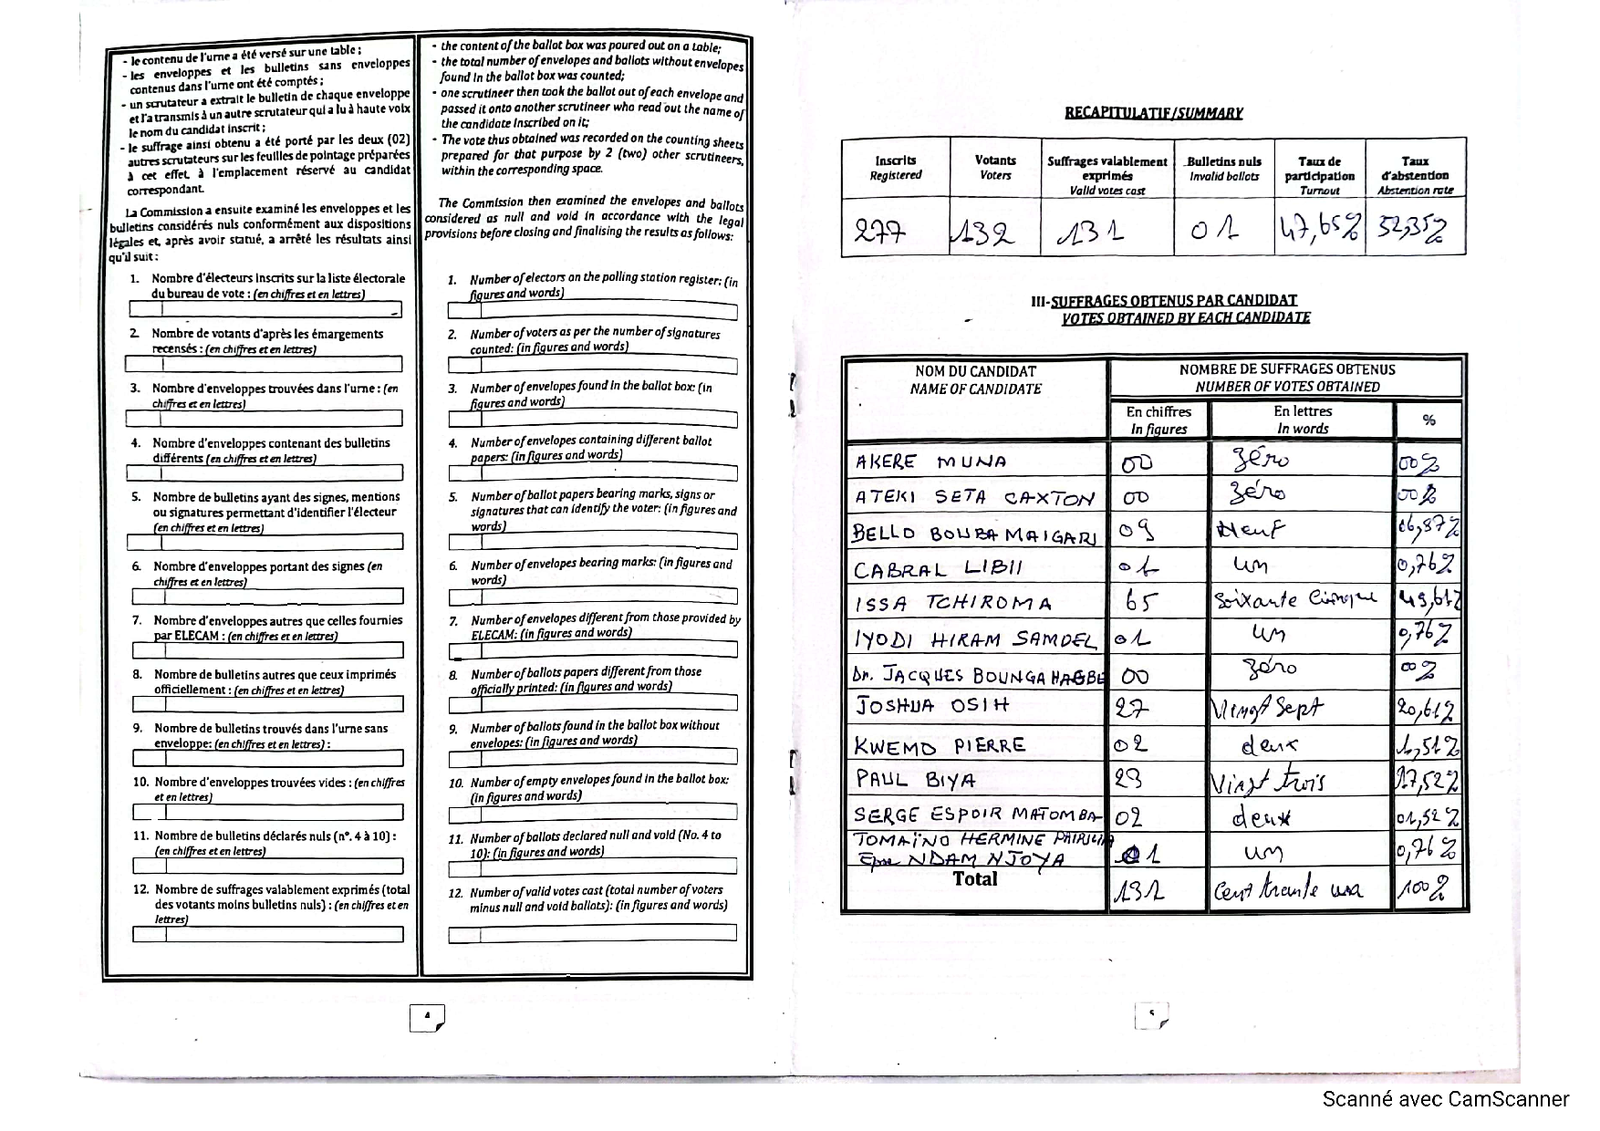 - le contenu de l'urne a été versé sur une table ;
- les enveloppes et les bulletins sans enveloppes
contenus dans l'urne ont été comptés ;
- un scrutateur a extrait le bulletin de chaque enveloppe
et l'a transmis à un autre scrutateur qui a lu à haute voix
le nom du candidat inscrit ;
- le suffrage ainsi obtenu a été porté par les deux (02)
autres scrutateurs sur les feuilles de pointage préparées
à cet effet, à l'emplacement réservé au candidat
correspondant.
La Commission a ensuite examiné les enveloppes et les
bulletins considérés nuls conformément aux dispositions
légales et, après avoir statué, a arrêté les résultats ainsi
qu'il suit :
1. Nombre d'électeurs inscrits sur la liste électorale
du bureau de vote : (en chiffres et en lettres)
2. Nombre de votants d'après les émargements
recensés : (en chiffres et en lettres)
3. Nombre d'enveloppes trouvées dans l'urne : (en
chiffres et en lettres)
4. Nombre d'enveloppes contenant des bulletins
différents (en chiffres et en lettres)
5. Nombre de bulletins ayant des signes, mentions
ou signatures permettant d'identifier l'électeur
(en chiffres et en lettres)
6. Nombre d'enveloppes portant des signes (en
chiffres et en lettres)
7. Nombre d'enveloppes autres que celles fournies
par ELECAM : (en chiffres et en lettres)
8. Nombre de bulletins autres que ceux imprimés
officiellement : (en chiffres et en lettres)
9. Nombre de bulletins trouvés dans l'urne sans
enveloppe: (en chiffres et en lettres) :
10. Nombre d'enveloppes trouvées vides : (en chiffres
et en lettres)
11. Nombre de bulletins déclarés nuls (n°. 4 à 10) :
(en chiffres et en lettres)
12. Nombre de suffrages valablement exprimés (total
des votants moins bulletins nuls) : (en chiffres et en
lettres)
- the content of the ballot box was poured out on a table;
- the total number of envelopes and ballots without envelopes
found in the ballot box was counted;
- one scrutineer then took the ballot out of each envelope and
passed it onto another scrutineer who read out the name of
the candidate inscribed on it;
- The vote thus obtained was recorded on the counting sheets
prepared for that purpose by 2 (two) other scrutineers,
within the corresponding space.
The Commission then examined the envelopes and ballots
considered as null and void in accordance with the legal
provisions before closing and finalising the results as follows:
1. Number of electors on the polling station register: (in
figures and words)
2. Number of voters as per the number of signatures
counted: (in figures and words)
3. Number of envelopes found in the ballot box: (in
figures and words)
4. Number of envelopes containing different ballot
papers: (in figures and words)
5. Number of ballot papers bearing marks, signs or
signatures that can identify the voter: (in figures and
words)
6. Number of envelopes bearing marks: (in figures and
words)
7. Number of envelopes different from those provided by
ELECAM: (in figures and words)
8. Number of ballots papers different from those
officially printed: (in figures and words)
9. Number of ballots found in the ballot box without
envelopes: (in figures and words)
10. Number of empty envelopes found in the ballot box:
(in figures and words)
11. Number of ballots declared null and void (No. 4 to
10): (in figures and words)
12. Number of valid votes cast (total number of voters
minus null and void ballots): (in figures and words)
4
RECAPITULATIF/SUMMARY
Inscrits Votants Suffrages valablement Bulletins nuls Taux de Taux
Registered Voters exprimés Invalid ballots participation d'abstention
Valid votes cast Turnout Abstention rate
277 132 131 01 47,65% 52,35%
III-SUFFRAGES OBTENUS PAR CANDIDAT
VOTES OBTAINED BY EACH CANDIDATE
NOM DU CANDIDAT NOMBRE DE SUFFRAGES OBTENUS
NAME OF CANDIDATE NUMBER OF VOTES OBTAINED
En chiffres En lettres %
In figures In words
AKERE MUNA 00 zéro 00%
ATEKI SETA CAXTON 00 zéro 00%
BELLO BOUBA MAIGARI 09 Neuf 06,87%
CABRAL LIBII 01 un 0,76%
ISSA TCHIROMA 65 soixante cinque 49,61%
IYODI HIRAM SAMUEL 01 un 0,76%
Dr. JACQUES BOUNGA HAGBE 00 zéro 00%
JOSHUA OSIH 27 Vingt Sept 20,61%
KWEMO PIERRE 02 deux 1,51%
PAUL BIYA 23 Vingt trois 17,52%
SERGE ESPOIR MATOMBA 02 deux 01,52%
TOMAÏNO HERMINE
Epse NDAM NJOYA 01 un 0,76%
Total 131 Cent trente un 100%
5
Scanné avec CamScanner